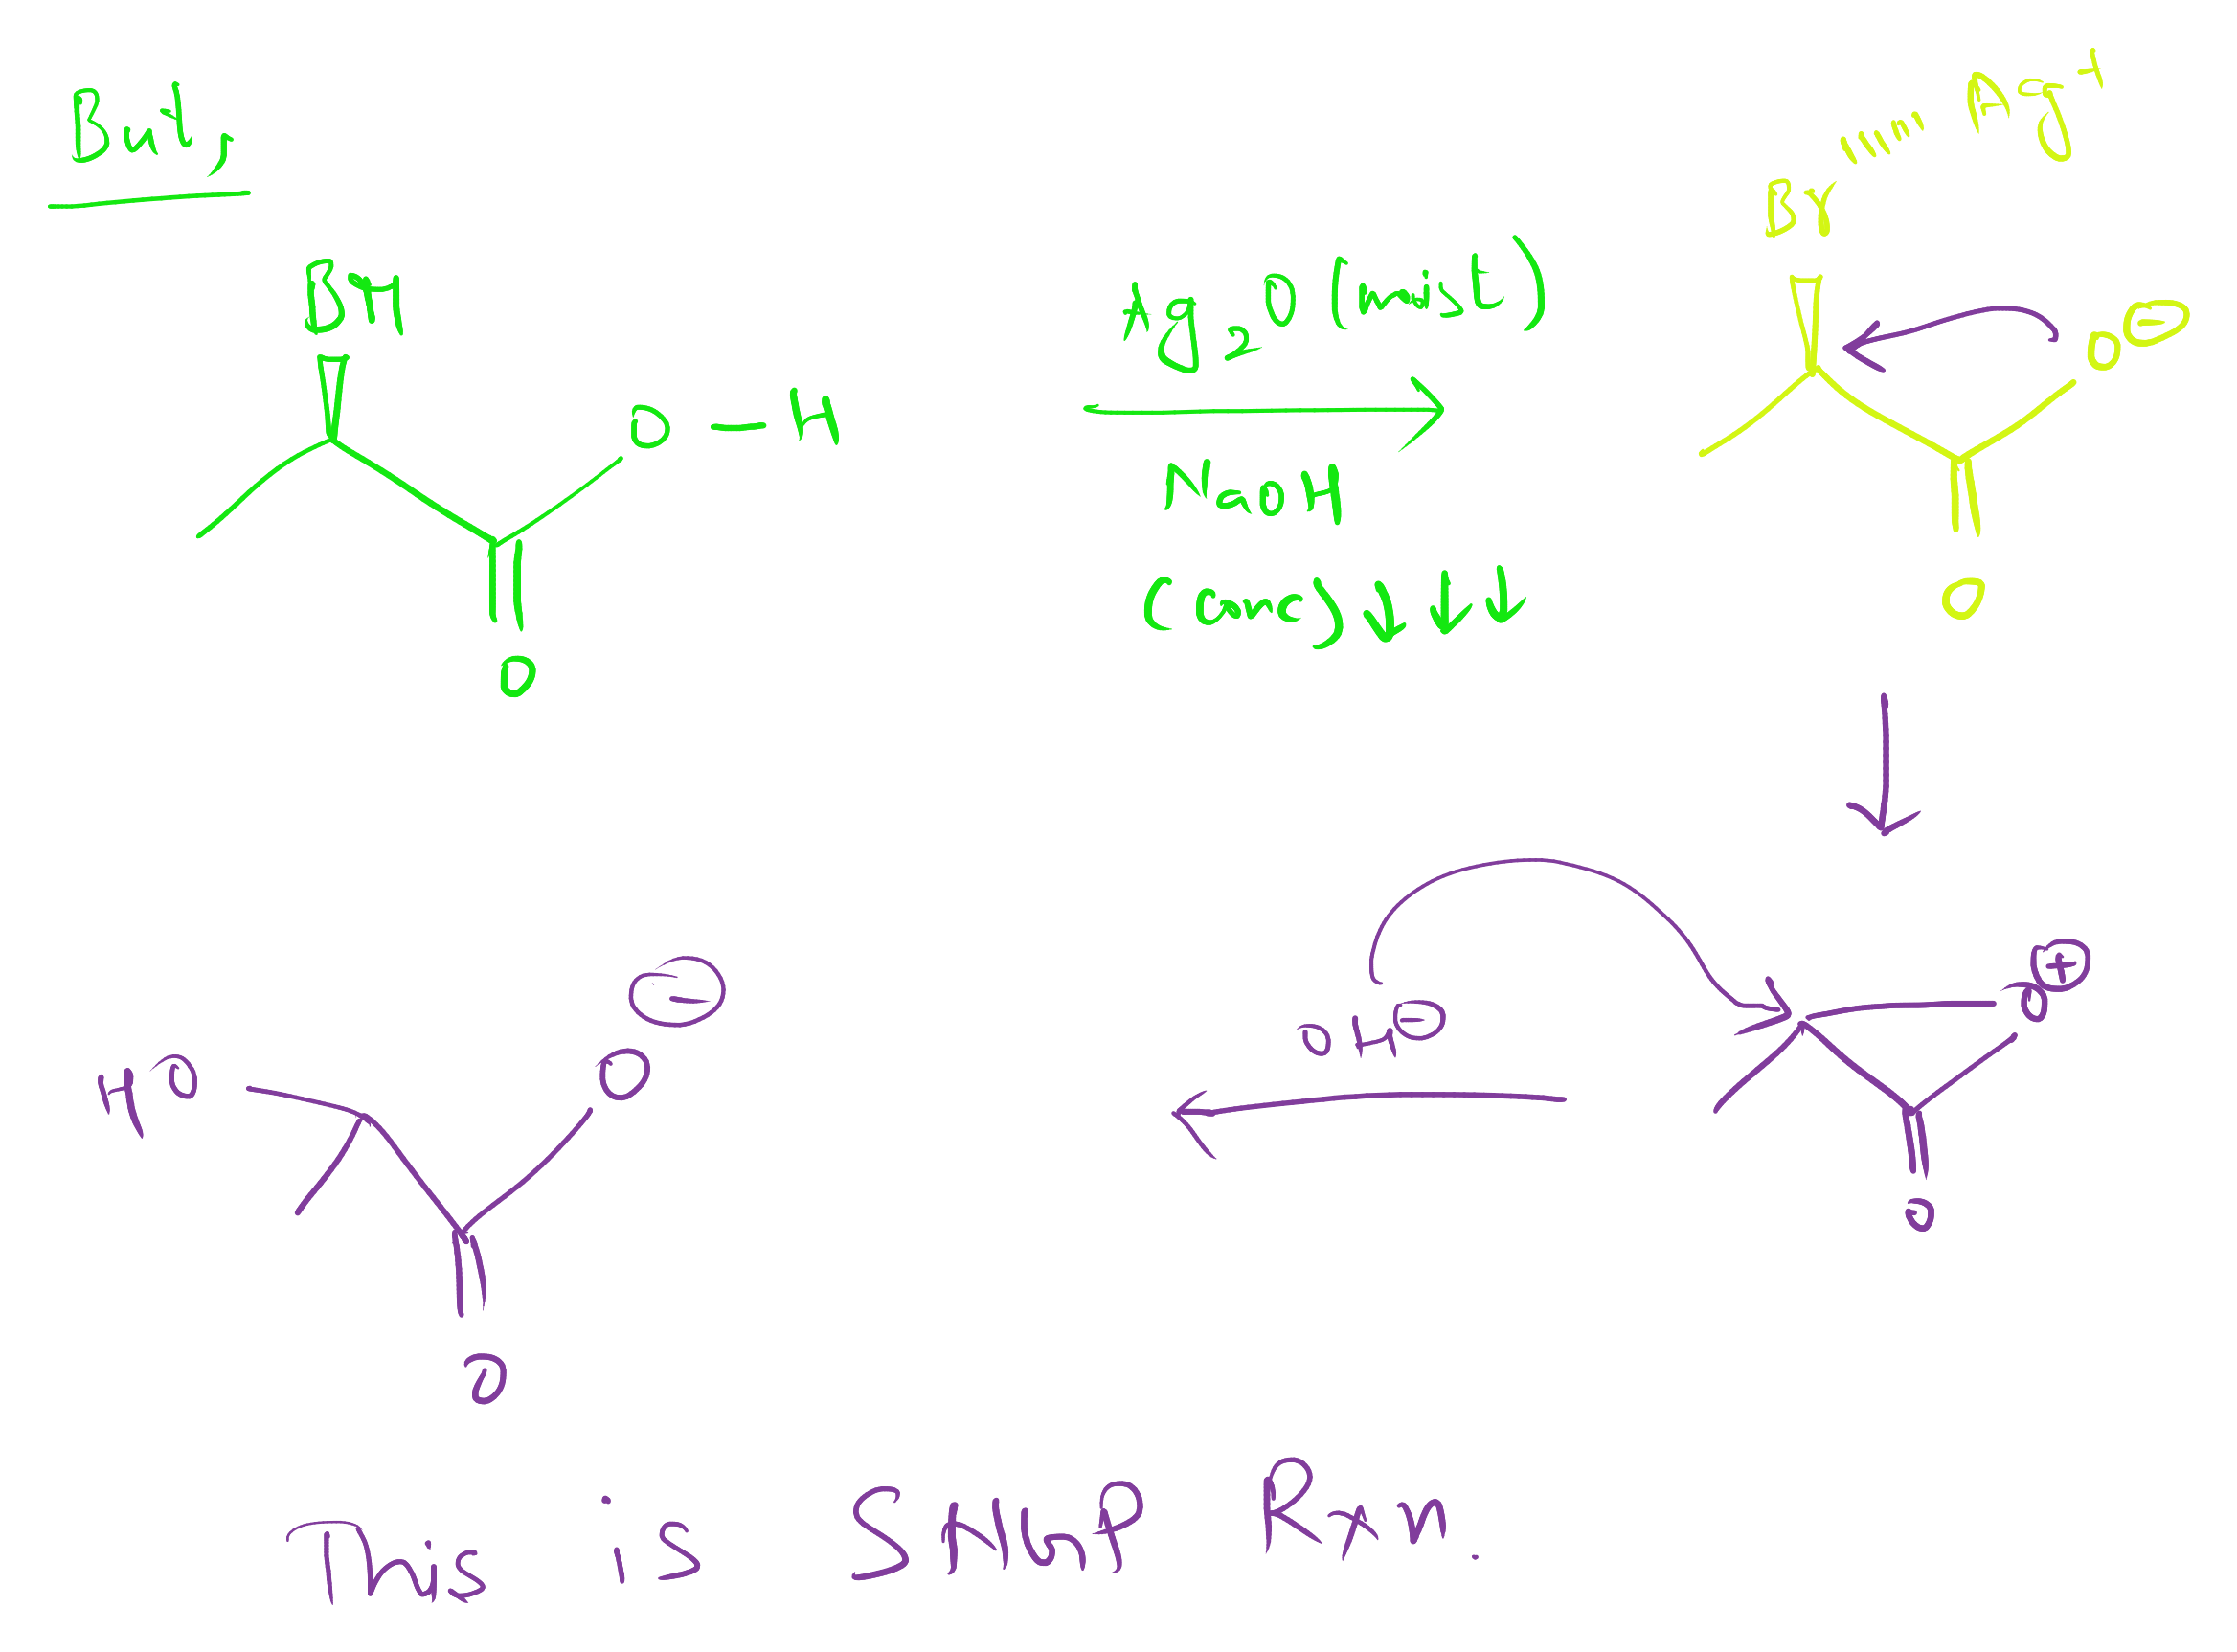 But,
Br
O - H
O
Ag2O (moist)
NaOH
(conc) ↓ ↓ ↓
Br Ag+
O⊖
O
HO
O⊖
O
OH⊖
O⊕
O
This is SNGP Rxn.